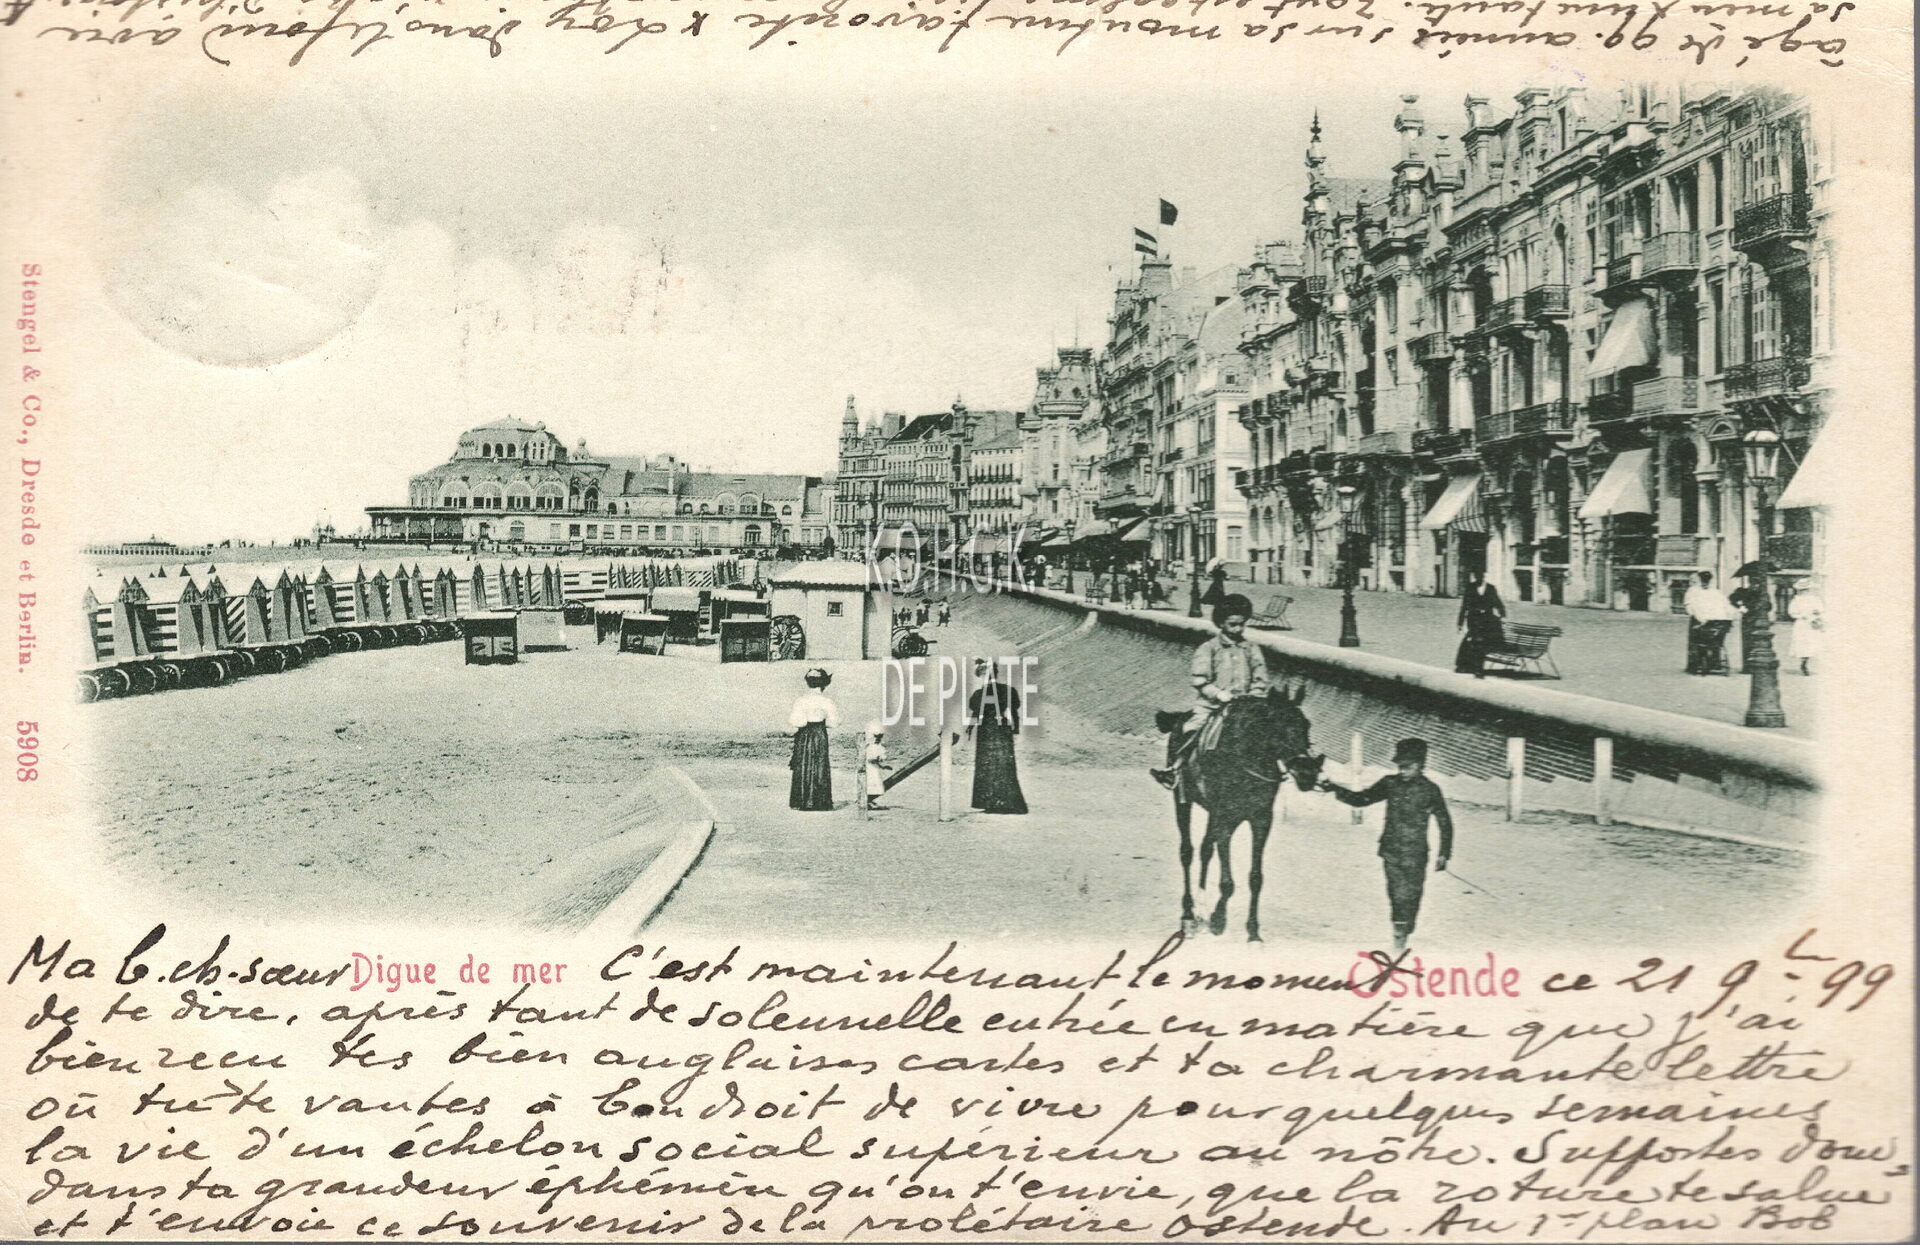 Ma b. ch. sœur Digue de mer C'est maintenant le moment Ostende ce 21 9 99
de te dire, après tant de solennelle entrée en matière que j'ai
bien recu tes bien anglaises cartes et ta charmante lettre
où tu te vantes à bon droit de vivre pour quelques semaines
la vie d'un échelon social supérieur au nôtre. Supportes donc
dans ta grandeur éphémère qu'on t'envie, que la roture te salue
et t'envoie ce souvenir de la prolétaire Ostende. Au 1er plan Bob
âgé de 99. années sur sa monture favorite x Loy dans le fond avec
sa
Stengel & Co., Dresde et Berlin. 5908
KOHGK
DE PLATE